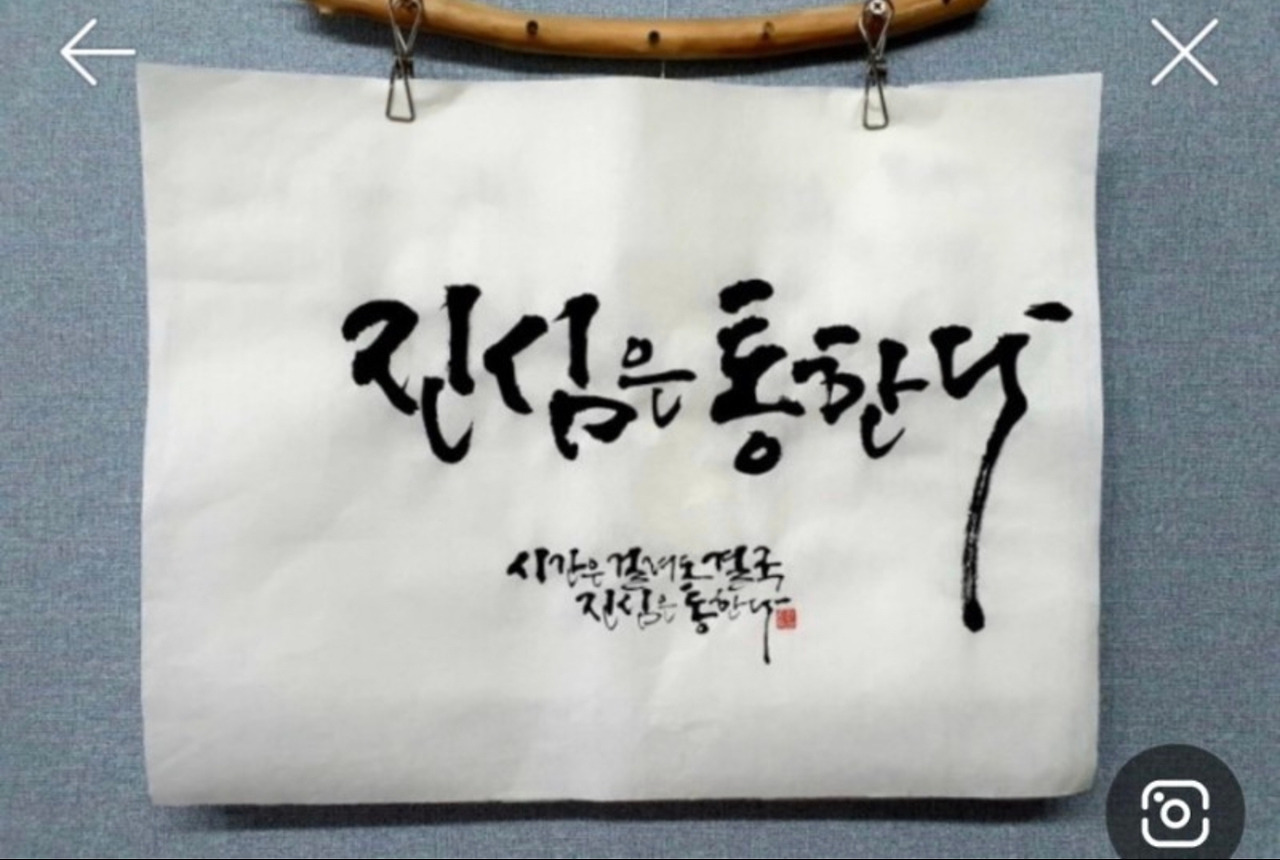 진심은 통한다
시간은 걸려도 결국
진심은 통한다